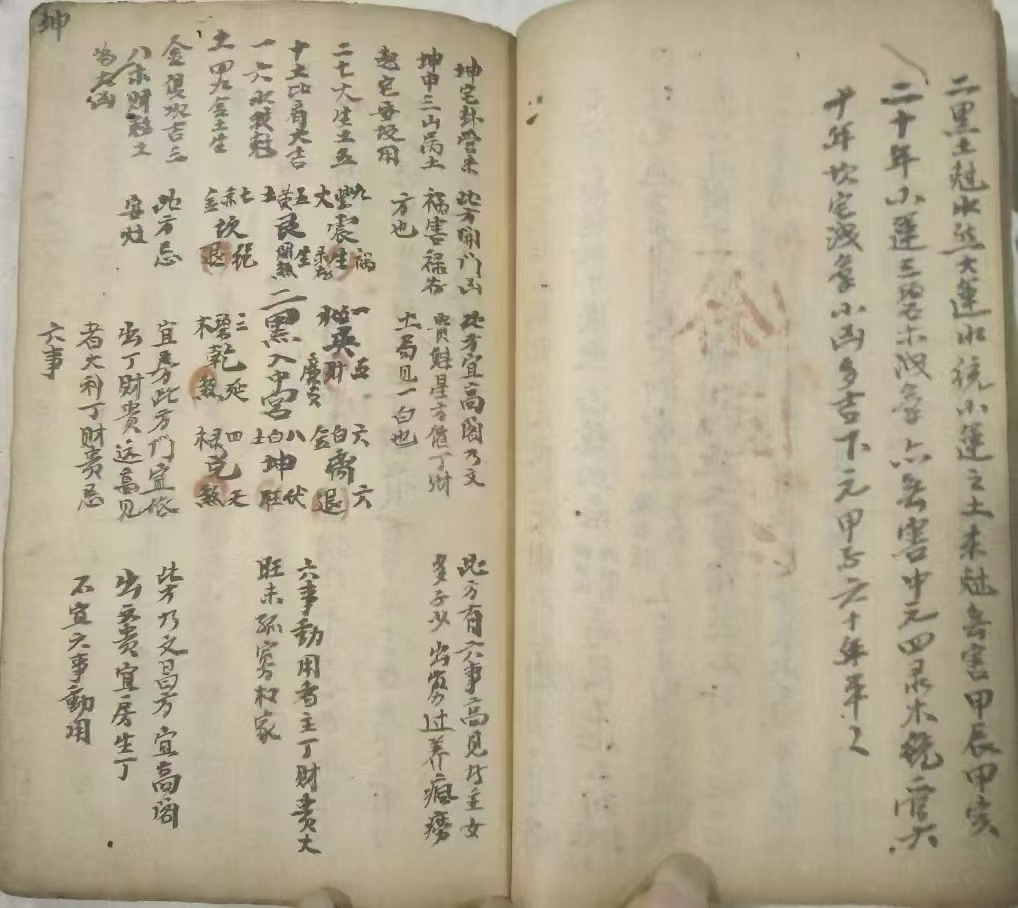 二黑土尅水然大運水統小運之土未尅無害甲辰甲寅
二十年小運三碧木洩氣亦無害中元四录木統六
十年坎宅洩氣小凶多吉下元甲子六十年平之
坤
坤宅卦管未
坤申三山屬土
二七火生土五
十土比肩大吉
一六水被尅
土四九金土生
金俱次吉三
八木財尅土
為大凶
此方開門凶
禍害禄存
方也
九
紫震禍
火生
五
黄艮生
土
七
赤坎絕
金退
此方忌
安灶
此方宜高阁乃文
貴魁星方催丁财
土局見一白也
一
五
二黑入中宫
三
碧乾延
木煞
宜房此方门宜
出丁財貴远高見
者大利丁財貴忌
六事
六
白離六
金退
八
白坤伏
土旺
四
禄兑天
木煞
此方有六事高見片主女
多子少出寡过养瘋痨
六事動用者主丁財貴大
旺未孤寡和家
此方乃文昌方宜高阁
出貴宜房生丁
不宜六事動用